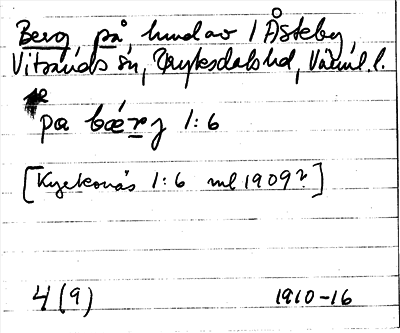 Berg på, hmd av 1 Åsteby,
Vitsands sn, Fryksdals hd, Värml. l.
pa bærj 1:6
[Kyrkovás 1:6 ml 1909?]
4 (9) 1910-16